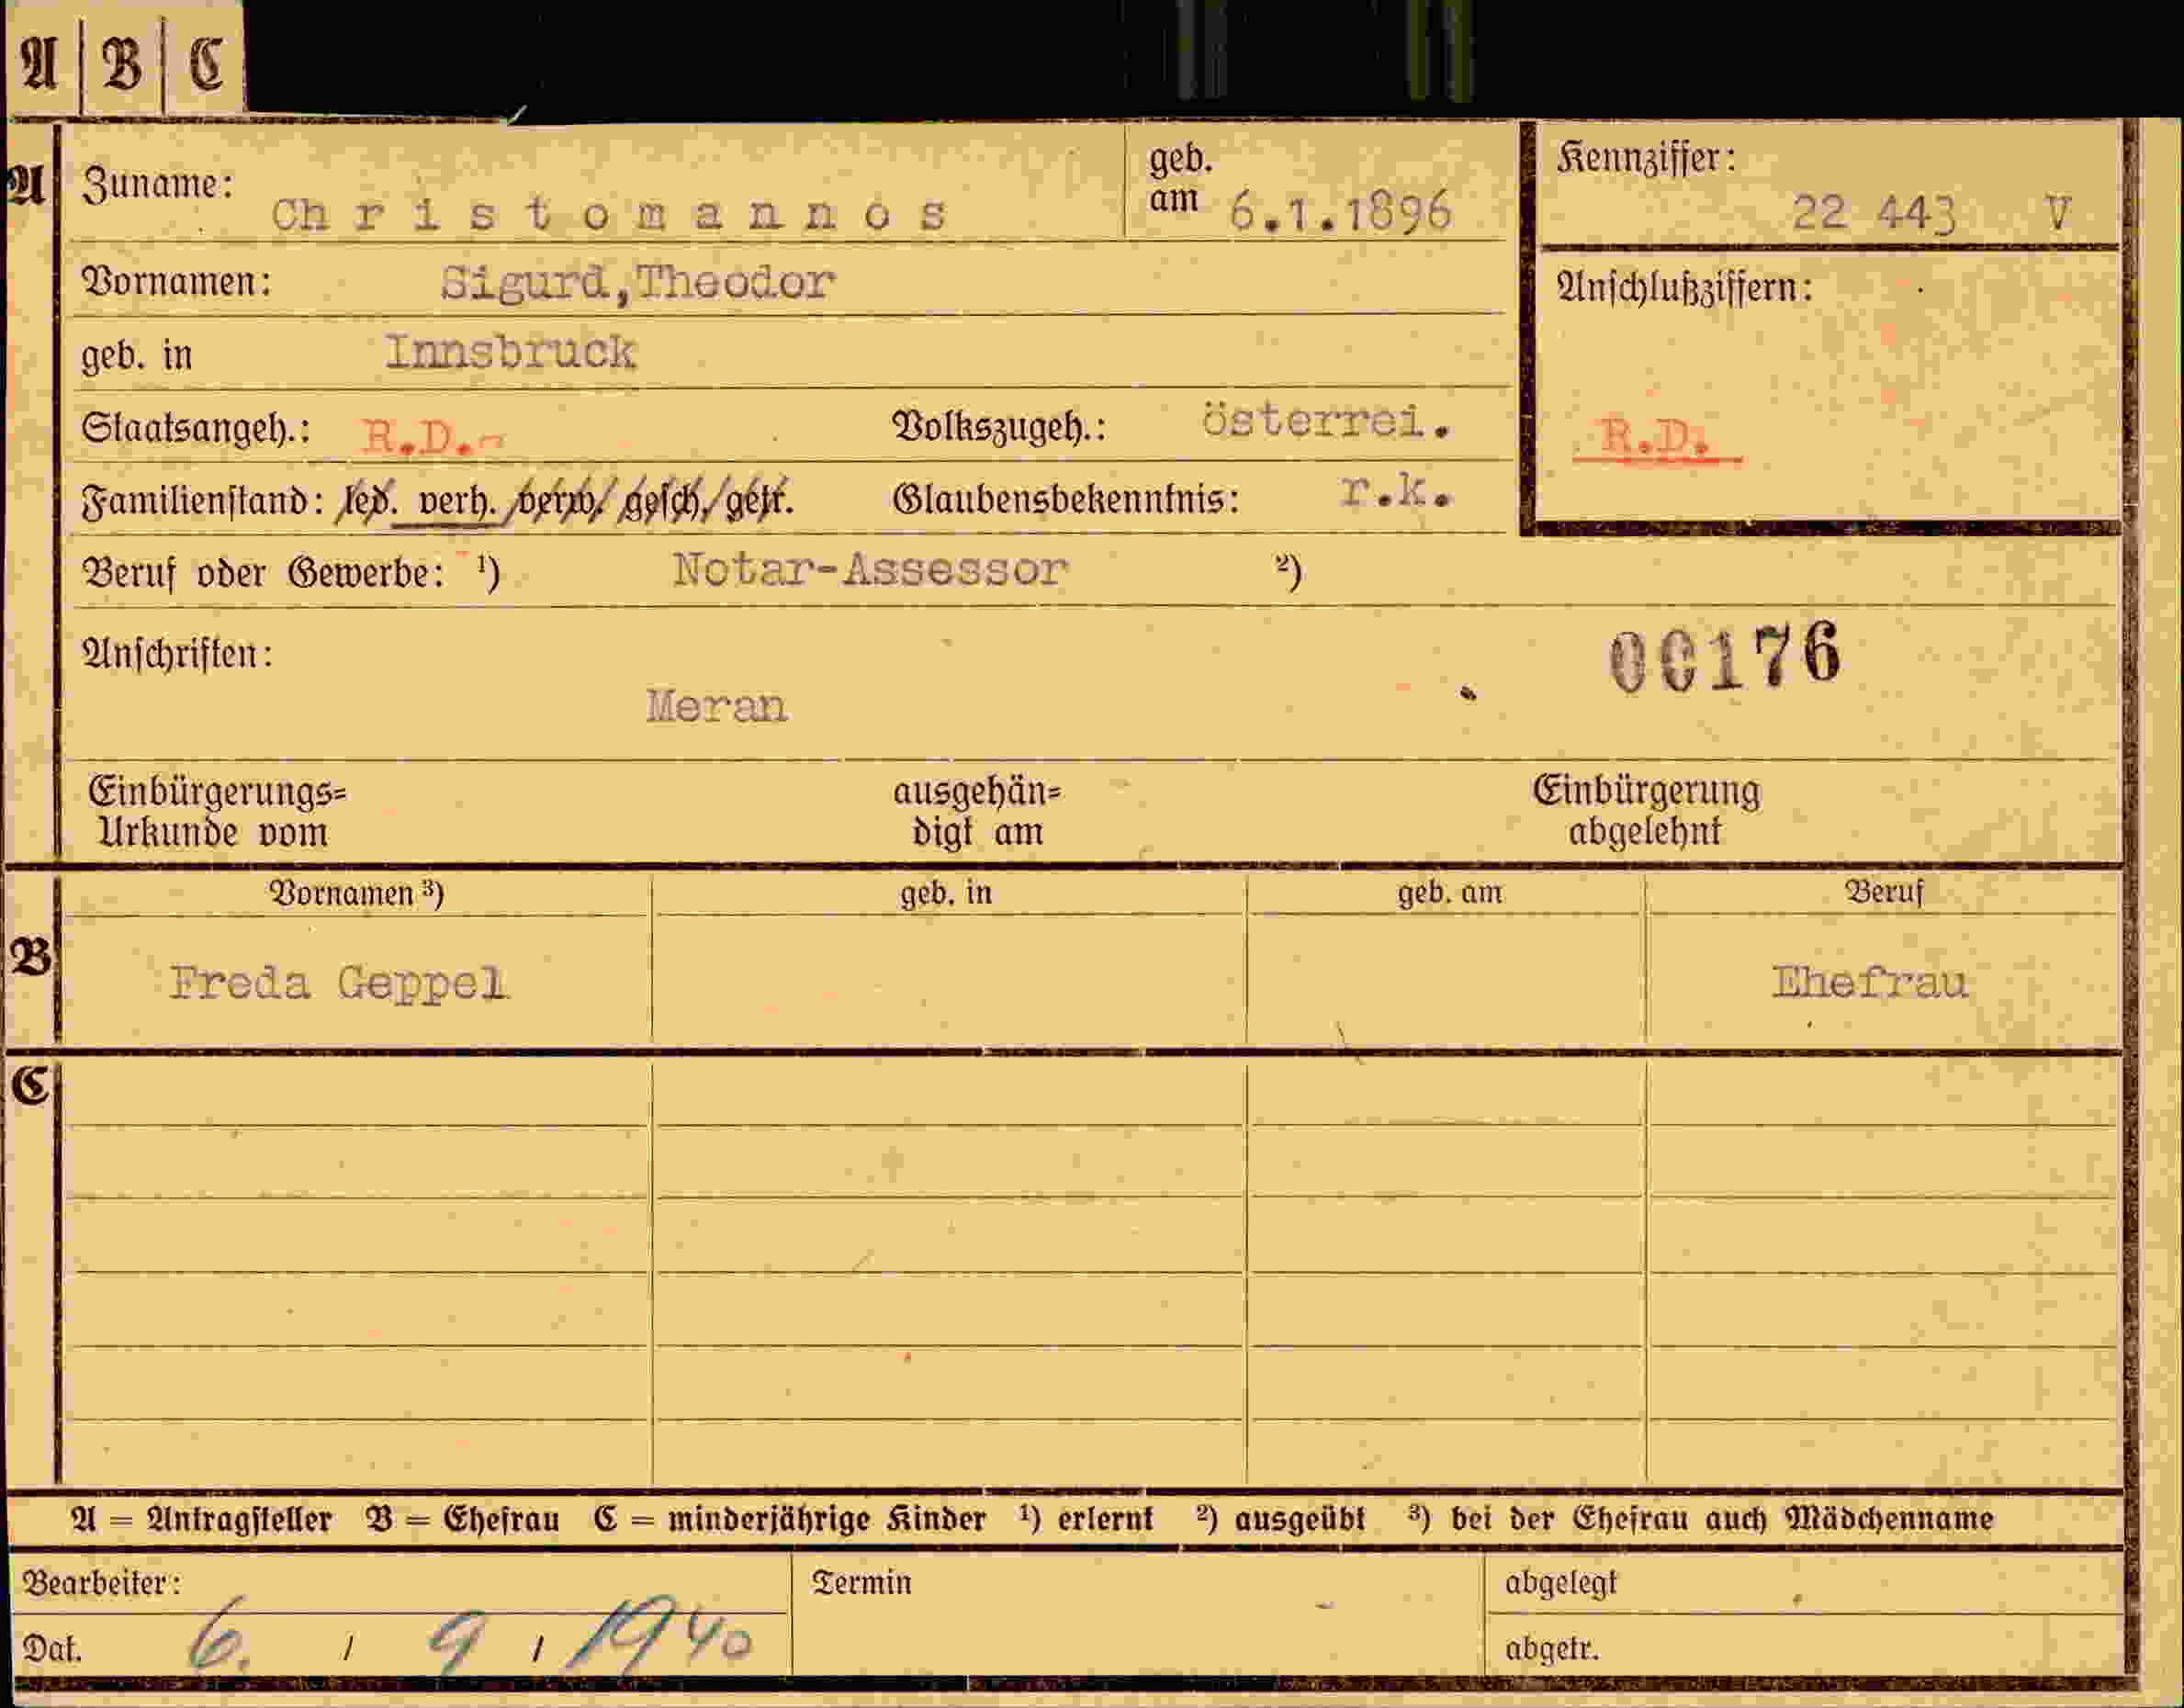 A | B | C
A Zuname: Christomannos geb. am 6.1.1896 Kennziffer: 22 443 V
Vornamen: Sigurd,Theodor Anschlußziffern:
geb. in Innsbruck
Staatsangeh.: R.D.- Volkszugeh.: österrei. R.D.
Familienstand: led. verh. verw. gesch. getr. Glaubensbekenntnis: r.k.
Beruf oder Gewerbe: ¹) Notar-Assessor ²)
Anschriften: 00176
Meran
Einbürgerungs= ausgehän= Einbürgerung
Urkunde vom digt am abgelehnt
Vornamen ³) geb. in geb. am Beruf
B Freda Geppel Ehefrau
C
A = Antragsteller B = Ehefrau C = minderjährige Kinder ¹) erlernt ²) ausgeübt ³) bei der Ehefrau auch Mädchenname
Bearbeiter: Termin abgelegt
Dat. 6. / 9 / 1940 abgetr.